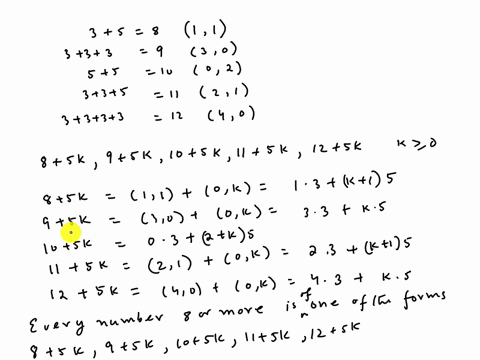 3 + 5 = 8 (1, 1)
3+3+3 = 9 (3, 0)
5+5 = 10 (0, 2)
3+3+5 = 11 (2, 1)
3+3+3+3 = 12 (4, 0)
8+5K, 9+5K, 10+5K, 11+5K, 12+5K K ≥ 0
8+5K = (1,1) + (0,K) = 1.3 + (K+1) 5
9+5K = (3,0) + (0,K) = 3.3 + K.5
10+5K = 0.3 + (2+K) 5
11 + 5K = (2,1) + (0,K) = 2.3 + (K+1) 5
12 + 5K = (4,0) + (0,K) = 4.3 + K.5
Every number 8 or more is of one of the forms
8+5K, 9+5K, 10+5K, 11+5K, 12+5K